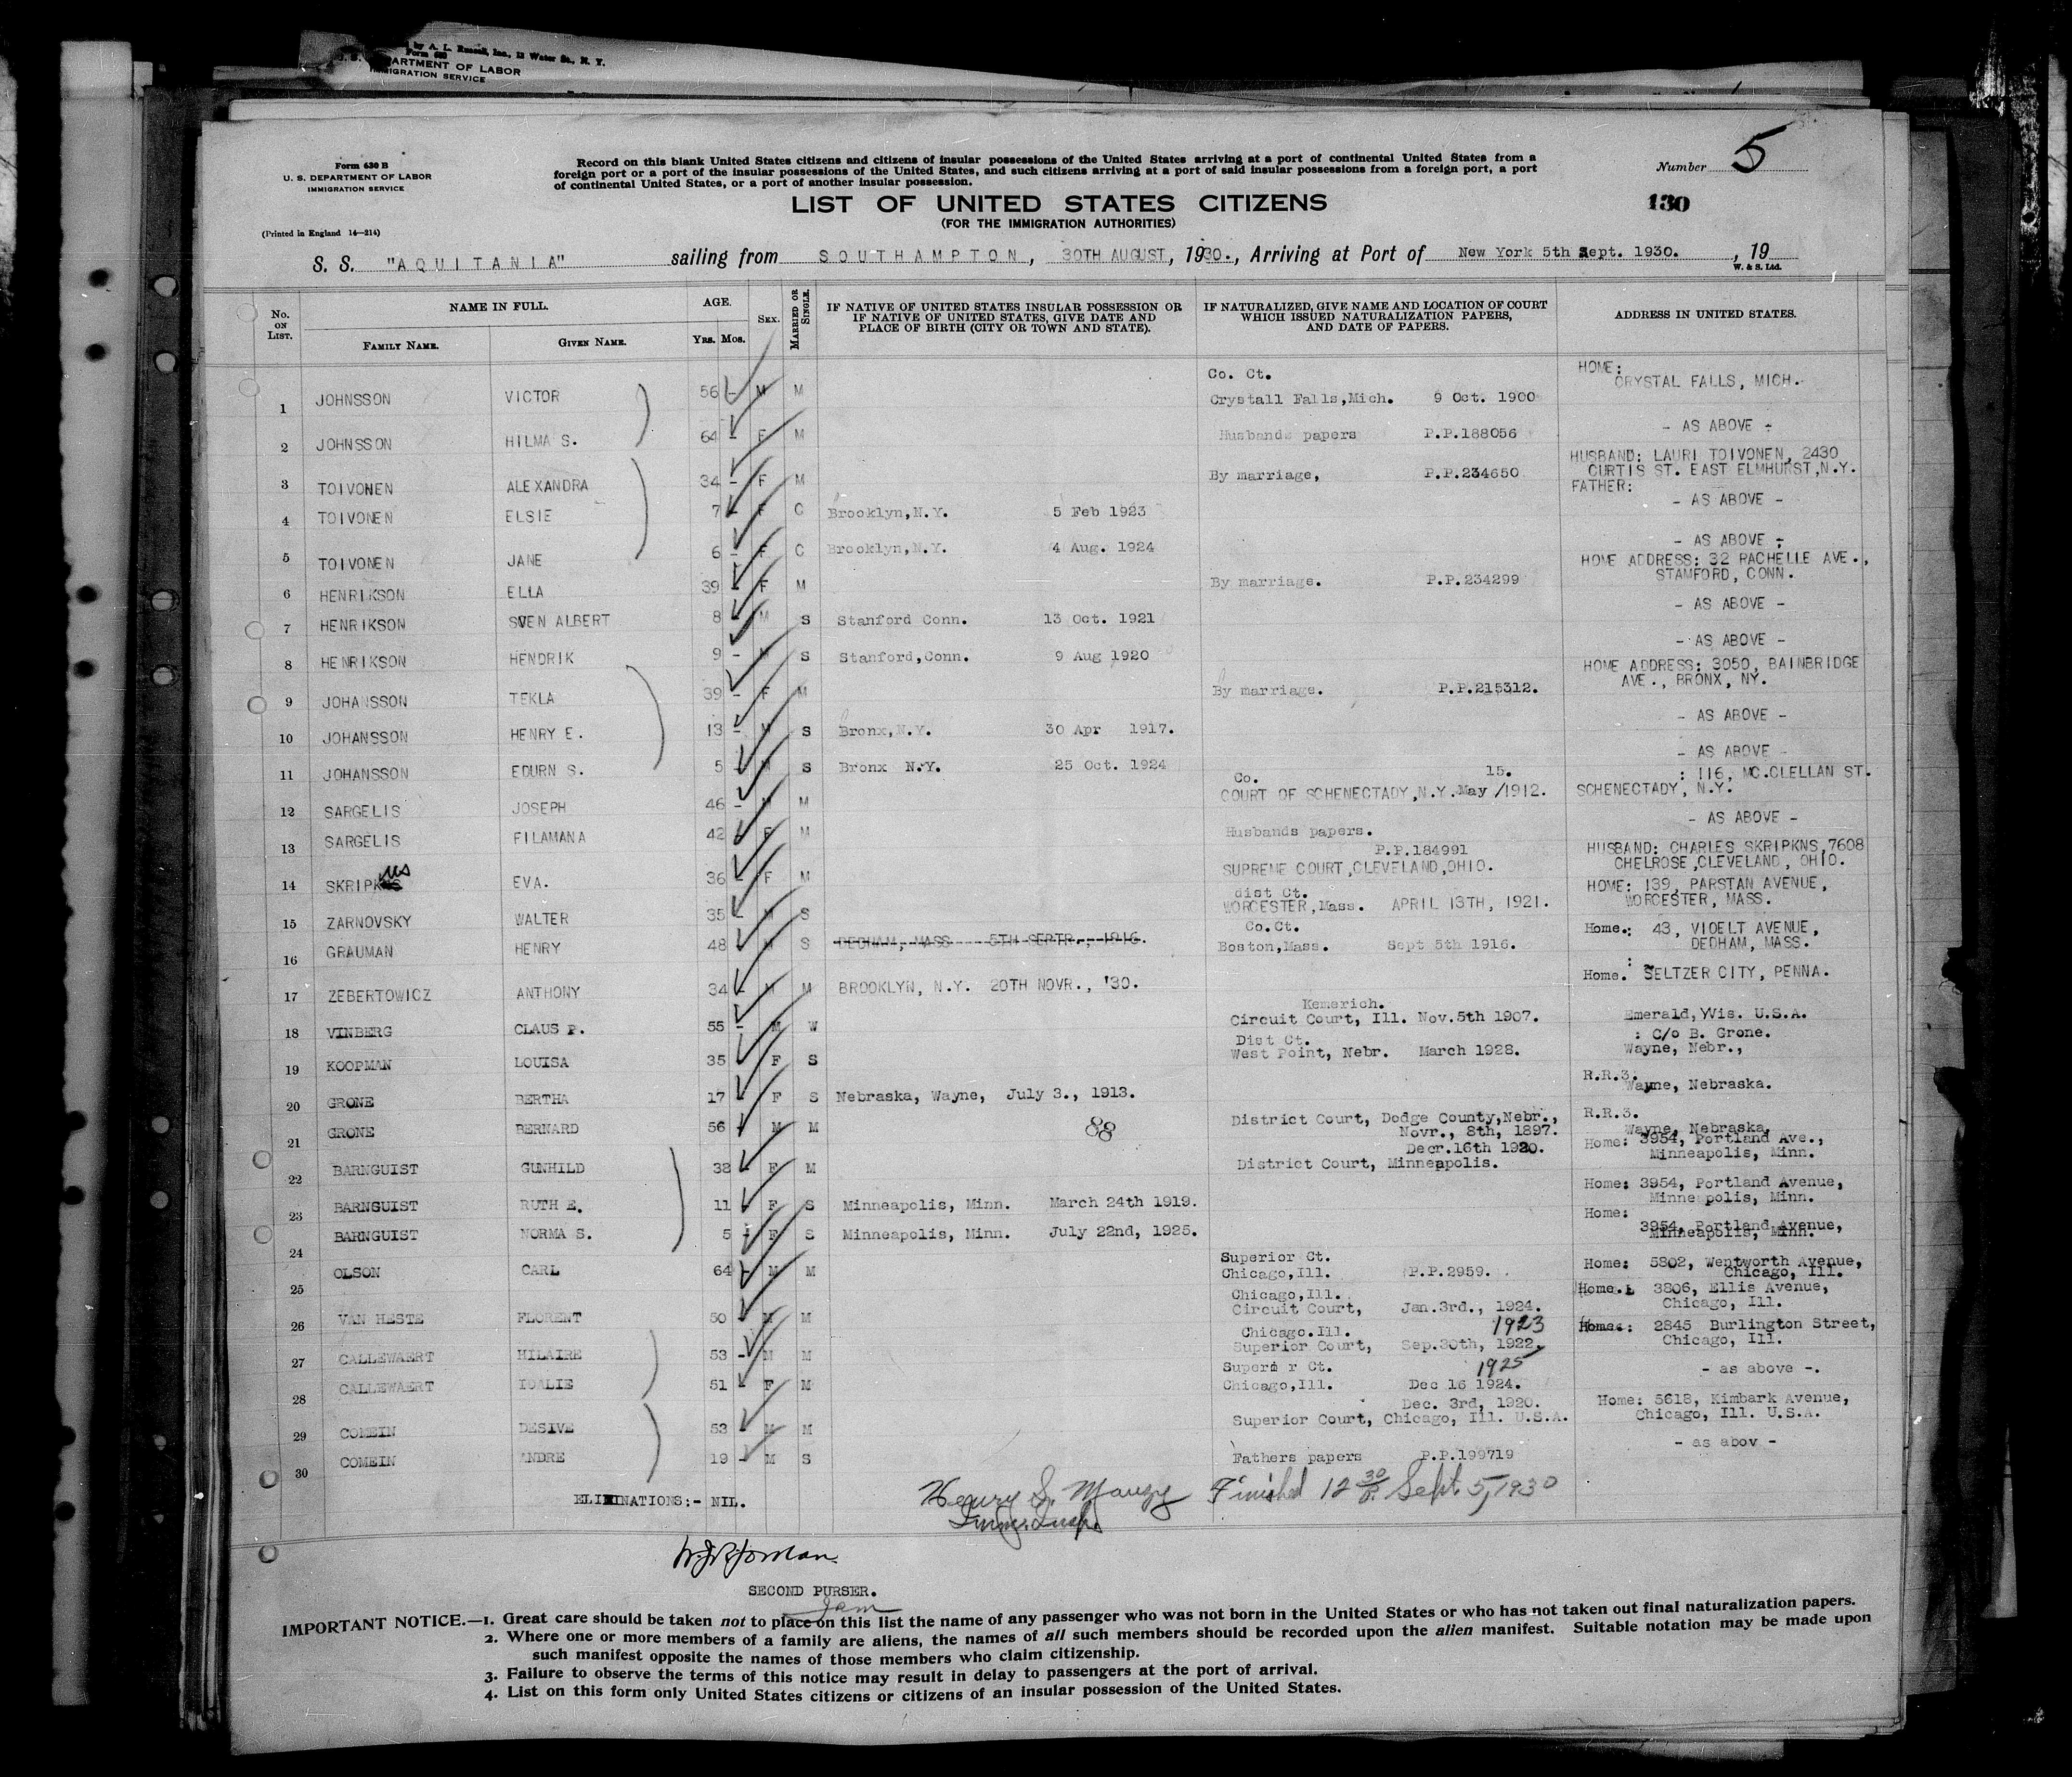 by A. L. Russell, Inc., 12 Water St., N. Y.
Form 630
U. S. DEPARTMENT OF LABOR
IMMIGRATION SERVICE
Form 630 B
U. S. DEPARTMENT OF LABOR
IMMIGRATION SERVICE
(Printed in England 14—214)
Record on this blank United States citizens and citizens of insular possessions of the United States arriving at a port of continental United States from a
foreign port or a port of the insular possessions of the United States, and such citizens arriving at a port of said insular possessions from a foreign port, a port
of continental United States, or a port of another insular possession.
Number 5
130
LIST OF UNITED STATES CITIZENS
(FOR THE IMMIGRATION AUTHORITIES)
S. S. "AQUITANIA" sailing from SOUTHAMPTON, 30TH AUGUST, 1930., Arriving at Port of New York 5th Sept. 1930. , 19
W. & S. Ltd.
No. ON LIST. NAME IN FULL. AGE. SEX. MARRIED OR SINGLE. IF NATIVE OF UNITED STATES INSULAR POSSESSION OR IF NATIVE OF UNITED STATES, GIVE DATE AND PLACE OF BIRTH (CITY OR TOWN AND STATE). IF NATURALIZED, GIVE NAME AND LOCATION OF COURT WHICH ISSUED NATURALIZATION PAPERS, AND DATE OF PAPERS. ADDRESS IN UNITED STATES.
FAMILY NAME. GIVEN NAME. Yrs. Mos.
1 JOHNSSON VICTOR 56 - M M Co. Ct. Crystall Falls,Mich. 9 Oct. 1900 HOME: CRYSTAL FALLS, MICH.
2 JOHNSSON HILMA S. 64 - F M Husbands papers P.P.188056 - AS ABOVE -
3 TOIVONEN ALEXANDRA 34 - F M By marriage, P.P.234650 HUSBAND: LAURI TOIVONEN, 2430 CURTIS ST. EAST ELMHURST,N.Y.
4 TOIVONEN ELSIE 7 - F C Brooklyn,N.Y. 5 Feb 1923 FATHER: - AS ABOVE -
5 TOIVONEN JANE 6 - F C Brooklyn,N.Y. 4 Aug. 1924 - AS ABOVE -
6 HENRIKSON ELLA 39 - F M By marriage. P.P.234299 HOME ADDRESS: 32 RACHELLE AVE., STAMFORD, CONN.
7 HENRIKSON SVEN ALBERT 8 - M S Stanford Conn. 13 Oct. 1921 - AS ABOVE -
8 HENRIKSON HENDRIK 9 - M S Stanford,Conn. 9 Aug 1920 - AS ABOVE
9 JOHANSSON TEKLA 39 - F M By marriage. P.P.215312. HOME ADDRESS: 3050, BAINBRIDGE AVE., BRONX, NY.
10 JOHANSSON HENRY E. 13 - M S Bronx,N.Y. 30 Apr 1917. - AS ABOVE -
11 JOHANSSON EDURN S. 5 - M S Bronx N.Y. 25 Oct. 1924 - AS ABOVE -
12 SARGELIS JOSEPH 46 - M M Co. COURT OF SCHENECTADY,N.Y. May 15. /1912. : 116, MC.CLELLAN ST. SCHENECTADY, N.Y.
13 SARGELIS FILAMANA 42 - F M Husbands papers. - AS ABOVE -
14 SKRIPKNS EVA. 36 - F M P.P.184991 SUPREME COURT,CLEVELAND,OHIO. HUSBAND: CHARLES SKRIPKNS,7608 CHELROSE,CLEVELAND, OHIO.
15 ZARNOVSKY WALTER 35 - M S dist Ct. WORCESTER,Mass. APRIL 13TH, 1921. HOME: 139, PARSTAN AVENUE, WORCESTER, MASS.
16 GRAUMAN HENRY 48 - M S DEDHAM, MASS 5TH SEPTR., 1916. Co.Ct. Boston,Mass. Sept 5th 1916. Home.: 43, VIOELT AVENUE, DEDHAM, MASS.
17 ZEBERTOWICZ ANTHONY 34 - M M BROOKLYN, N.Y. 20TH NOVR., '30. Home. : SELTZER CITY, PENNA.
18 VINBERG CLAUS P. 55 - M W Kemerich. Circuit Court, Ill. Nov.5th 1907. Emerald, Wis. U.S.A.
19 KOOPMAN LOUISA 35 - F S Dist Ct. West Point, Nebr. March 1928. : C/o B. Grone. Wayne, Nebr.,
20 GRONE BERTHA 17 - F S Nebraska, Wayne, July 3., 1913. R.R.3. Wayne, Nebraska.
21 GRONE BERNARD 56 - M M 88 District Court, Dodge County,Nebr., Novr., 8th, 1897. R.R.3. Wayne, Nebraska,
22 BARNGUIST GUNHILD 38 - F M Decr.16th 1920. District Court, Minneapolis. Home: 3954, Portland Ave., Minneapolis, Minn.
23 BARNGUIST RUTH E. 11 - F S Minneapolis, Minn. March 24th 1919. Home: 3954, Portland Avenue, Minneapolis, Minn.
24 BARNGUIST NORMA S. 5 - F S Minneapolis, Minn. July 22nd, 1925. Home: 3954, Portland Avenue, Minneapolis, Minn.
25 OLSON CARL 64 - M M Superior Ct. Chicago,Ill. P.P.2959. Home: 5802, Wentworth Avenue, Chicago, Ill.
26 VAN HESTE FLORENT 50 - M M Chicago,Ill. Circuit Court, Jan.3rd., 1924. Home. 3806, Ellis Avenue, Chicago, Ill.
27 CALLEWAERT HILAIRE 53 - M M Chicago.Ill. Superior Court, Sep.30th, 1922. 1923 Home: 2845 Burlington Street, Chicago, Ill.
28 CALLEWAERT IOALIE 51 - F M Superi r Ct. Chicago,Ill. Dec 16 1924. 1925 - as above -.
29 COMEIN DESIVE 53 - M M Dec. 3rd, 1920. Superior Court, Chicago, Ill. U.S.A. Home: 5618, Kimbark Avenue, Chicago, Ill. U.S.A.
30 COMEIN ANDRE 19 - M S Fathers papers P.P.199719 - as abov -
ELIMINATIONS:- NIL.
Henry S. Mauzy Finished 12 30 Sept 5, 1930
Immig. Insp.
SECOND PURSER.
IMPORTANT NOTICE.—1. Great care should be taken not to place on this list the name of any passenger who was not born in the United States or who has not taken out final naturalization papers.
2. Where one or more members of a family are aliens, the names of all such members should be recorded upon the alien manifest. Suitable notation may be made upon
such manifest opposite the names of those members who claim citizenship.
3. Failure to observe the terms of this notice may result in delay to passengers at the port of arrival.
4. List on this form only United States citizens or citizens of an insular possession of the United States.